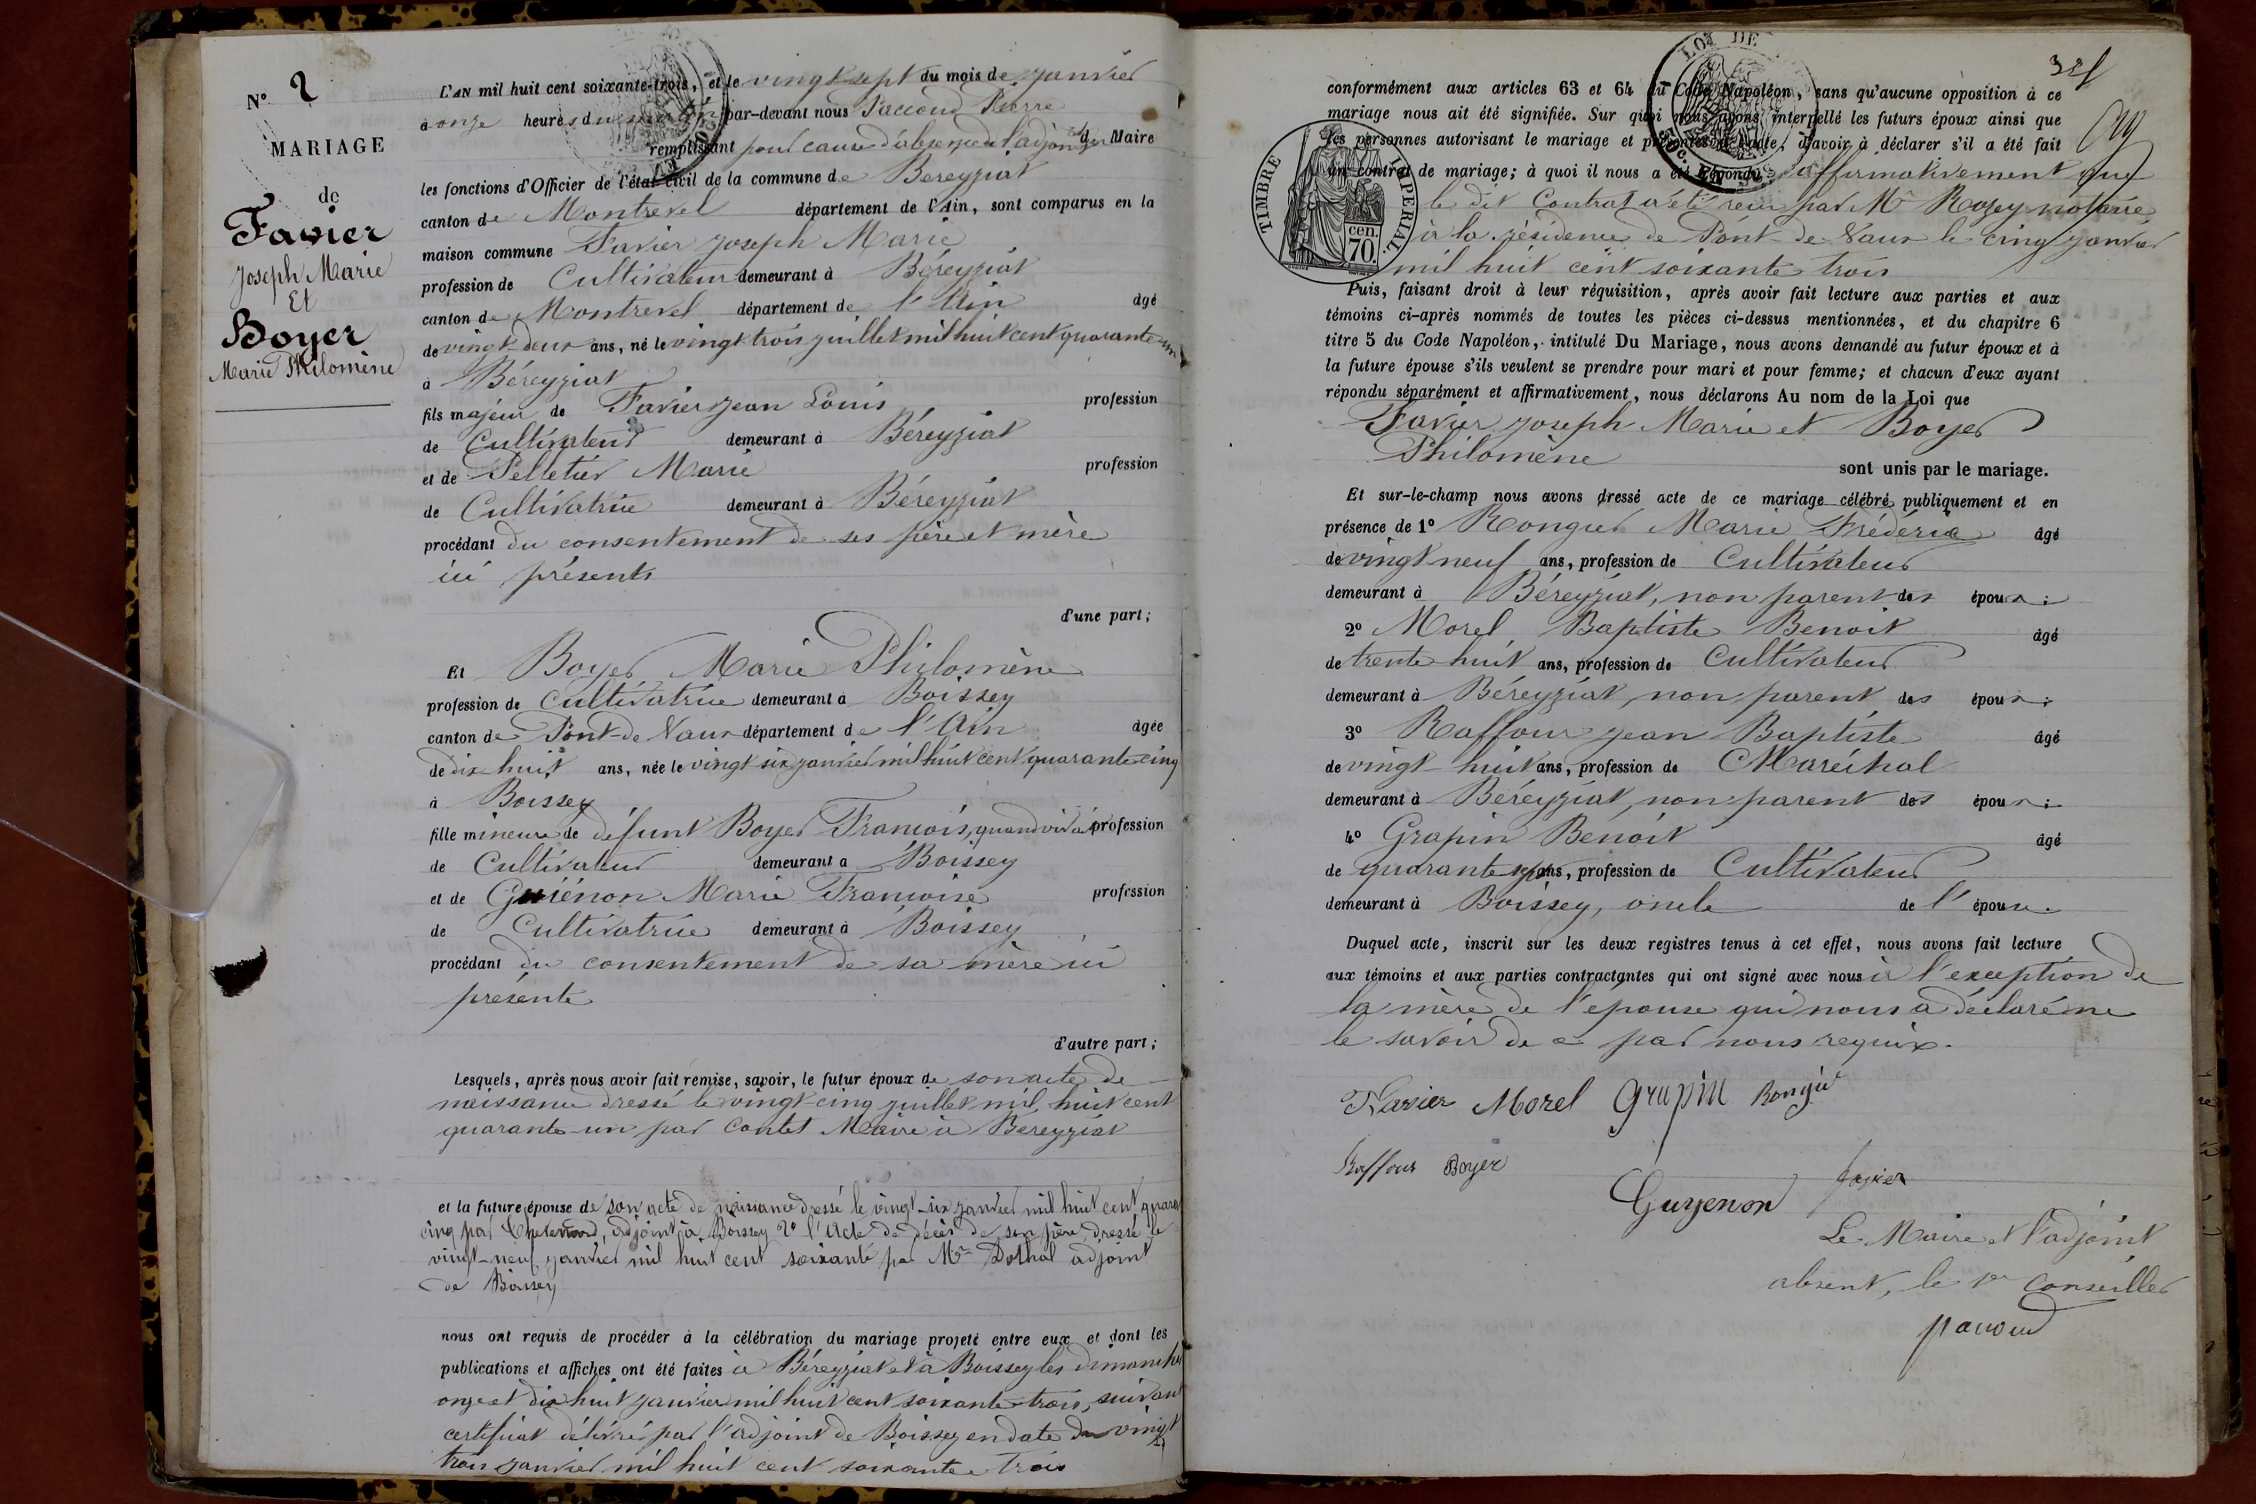 N° 2
MARIAGE
de
Favier
Joseph Marie
Et
Boyer
Marie Philomène
L'AN mil huit cent soixante-trois, et le vingt sept du mois de janvier
à onze heures du matin par-devant nous Paccoud Pierre
remplissant pour cause d'absence de l'adjoint et du Maire
les fonctions d'Officier de l'état civil de la commune de Béreyziat
canton de Montrevel département de l'Ain, sont comparus en la
maison commune Favier Joseph Marie
profession de Cultivateur demeurant à Béreyziat
canton de Montrevel département de l'Ain âgé
de vingt-deux ans, né le vingt trois juillet mil huit cent quarante un
à Béreyziat
fils majeur de Favier Jean Louis profession
de Cultivateur demeurant à Béreyziat
et de Pelletier Marie profession
de Cultivatrice demeurant à Béreyziat
procédant du consentement de ses père et mère
ici présents
d'une part;
Et Boyer Marie Philomène
profession de Cultivatrice demeurant à Boissey
canton de Pont-de-Vaux département de l'Ain âgée
de dix huit ans, née le vingt six janvier mil huit cent quarante cinq
à Boissey
fille mineure de défunt Boyer François, quand vivait profession
de Cultivateur demeurant à Boissey
et de Guiénon Marie Françoise profession
de Cultivatrice demeurant à Boissey
procédant du consentement de sa mère ici
présente
d'autre part;
Lesquels, après nous avoir fait remise, savoir, le futur époux de son acte de
naissance dressé le vingt-cinq juillet mil huit cent
quarante-un par Contet Maire à Béreyziat
et la future épouse de son acte de naissance dressé le vingt-six janvier mil huit cent quara
cinq par adjoint à Boissey 2° l'acte de décès de son père, dressé le
vingt-neuf janvier mil huit cent soixante par Mr Dothal adjoint
de Boissey
nous ont requis de procéder à la célébration du mariage projeté entre eux et dont les
publications et affiches ont été faites à Béreyziat et à Boissey les dimanches
onze et dix huit janvier mil huit cent soixante-trois, suivant
certificat délivré par l'adjoint de Boissey en date du vingt
trois janvier mil huit cent soixante trois
LOI DE
TIMBRE IMPERIAL
70 cen.
conformément aux articles 63 et 64 du Code Napoléon, sans qu'aucune opposition à ce
mariage nous ait été signifiée. Sur quoi nous avons interpellé les futurs époux ainsi que
les personnes autorisant le mariage et présentes à l'acte, d'avoir à déclarer s'il a été fait
un contrat de mariage; à quoi il nous a été répondu affirmativement que
le dit Contrat a été reçu par Me Rozey notaire
à la résidence de Pont-de-Vaux le cinq janvier
mil huit cent soixante trois
Puis, faisant droit à leur réquisition, après avoir fait lecture aux parties et aux
témoins ci-après nommés de toutes les pièces ci-dessus mentionnées, et du chapitre 6
titre 5 du Code Napoléon, intitulé Du Mariage, nous avons demandé au futur époux et à
la future épouse s'ils veulent se prendre pour mari et pour femme; et chacun d'eux ayant
répondu séparément et affirmativement, nous déclarons Au nom de la Loi que
Favier Joseph Marie et Boyer
Philomène
sont unis par le mariage.
Et sur-le-champ nous avons dressé acte de ce mariage célébré publiquement et en
présence de 1° Rongier Marie Frédéric âgé
de vingt neuf ans, profession de Cultivateur
demeurant à Béreyziat, non parent des époux;
2° Morel Baptiste Benoit âgé
de trente huit ans, profession de Cultivateur
demeurant à Béreyziat, non parent des époux;
3° Raffour Jean Baptiste âgé
de vingt-huit ans, profession de Maréchal
demeurant à Béreyziat, non parent des époux;
4° Grapin Benoit âgé
de quarante ans, profession de Cultivateur
demeurant à Boissey, oncle de l'épouse.
Duquel acte, inscrit sur les deux registres tenus à cet effet, nous avons fait lecture
aux témoins et aux parties contractantes qui ont signé avec nous à l'exception de
la mère de l'épouse qui nous a déclaré ne
le savoir de ce par nous requise.
Favier Morel Grapin Rongié
Raffour Boyer
Favier
Guyenon
Le Maire et l'adjoint
absent, le 1er Conseiller
paccoud